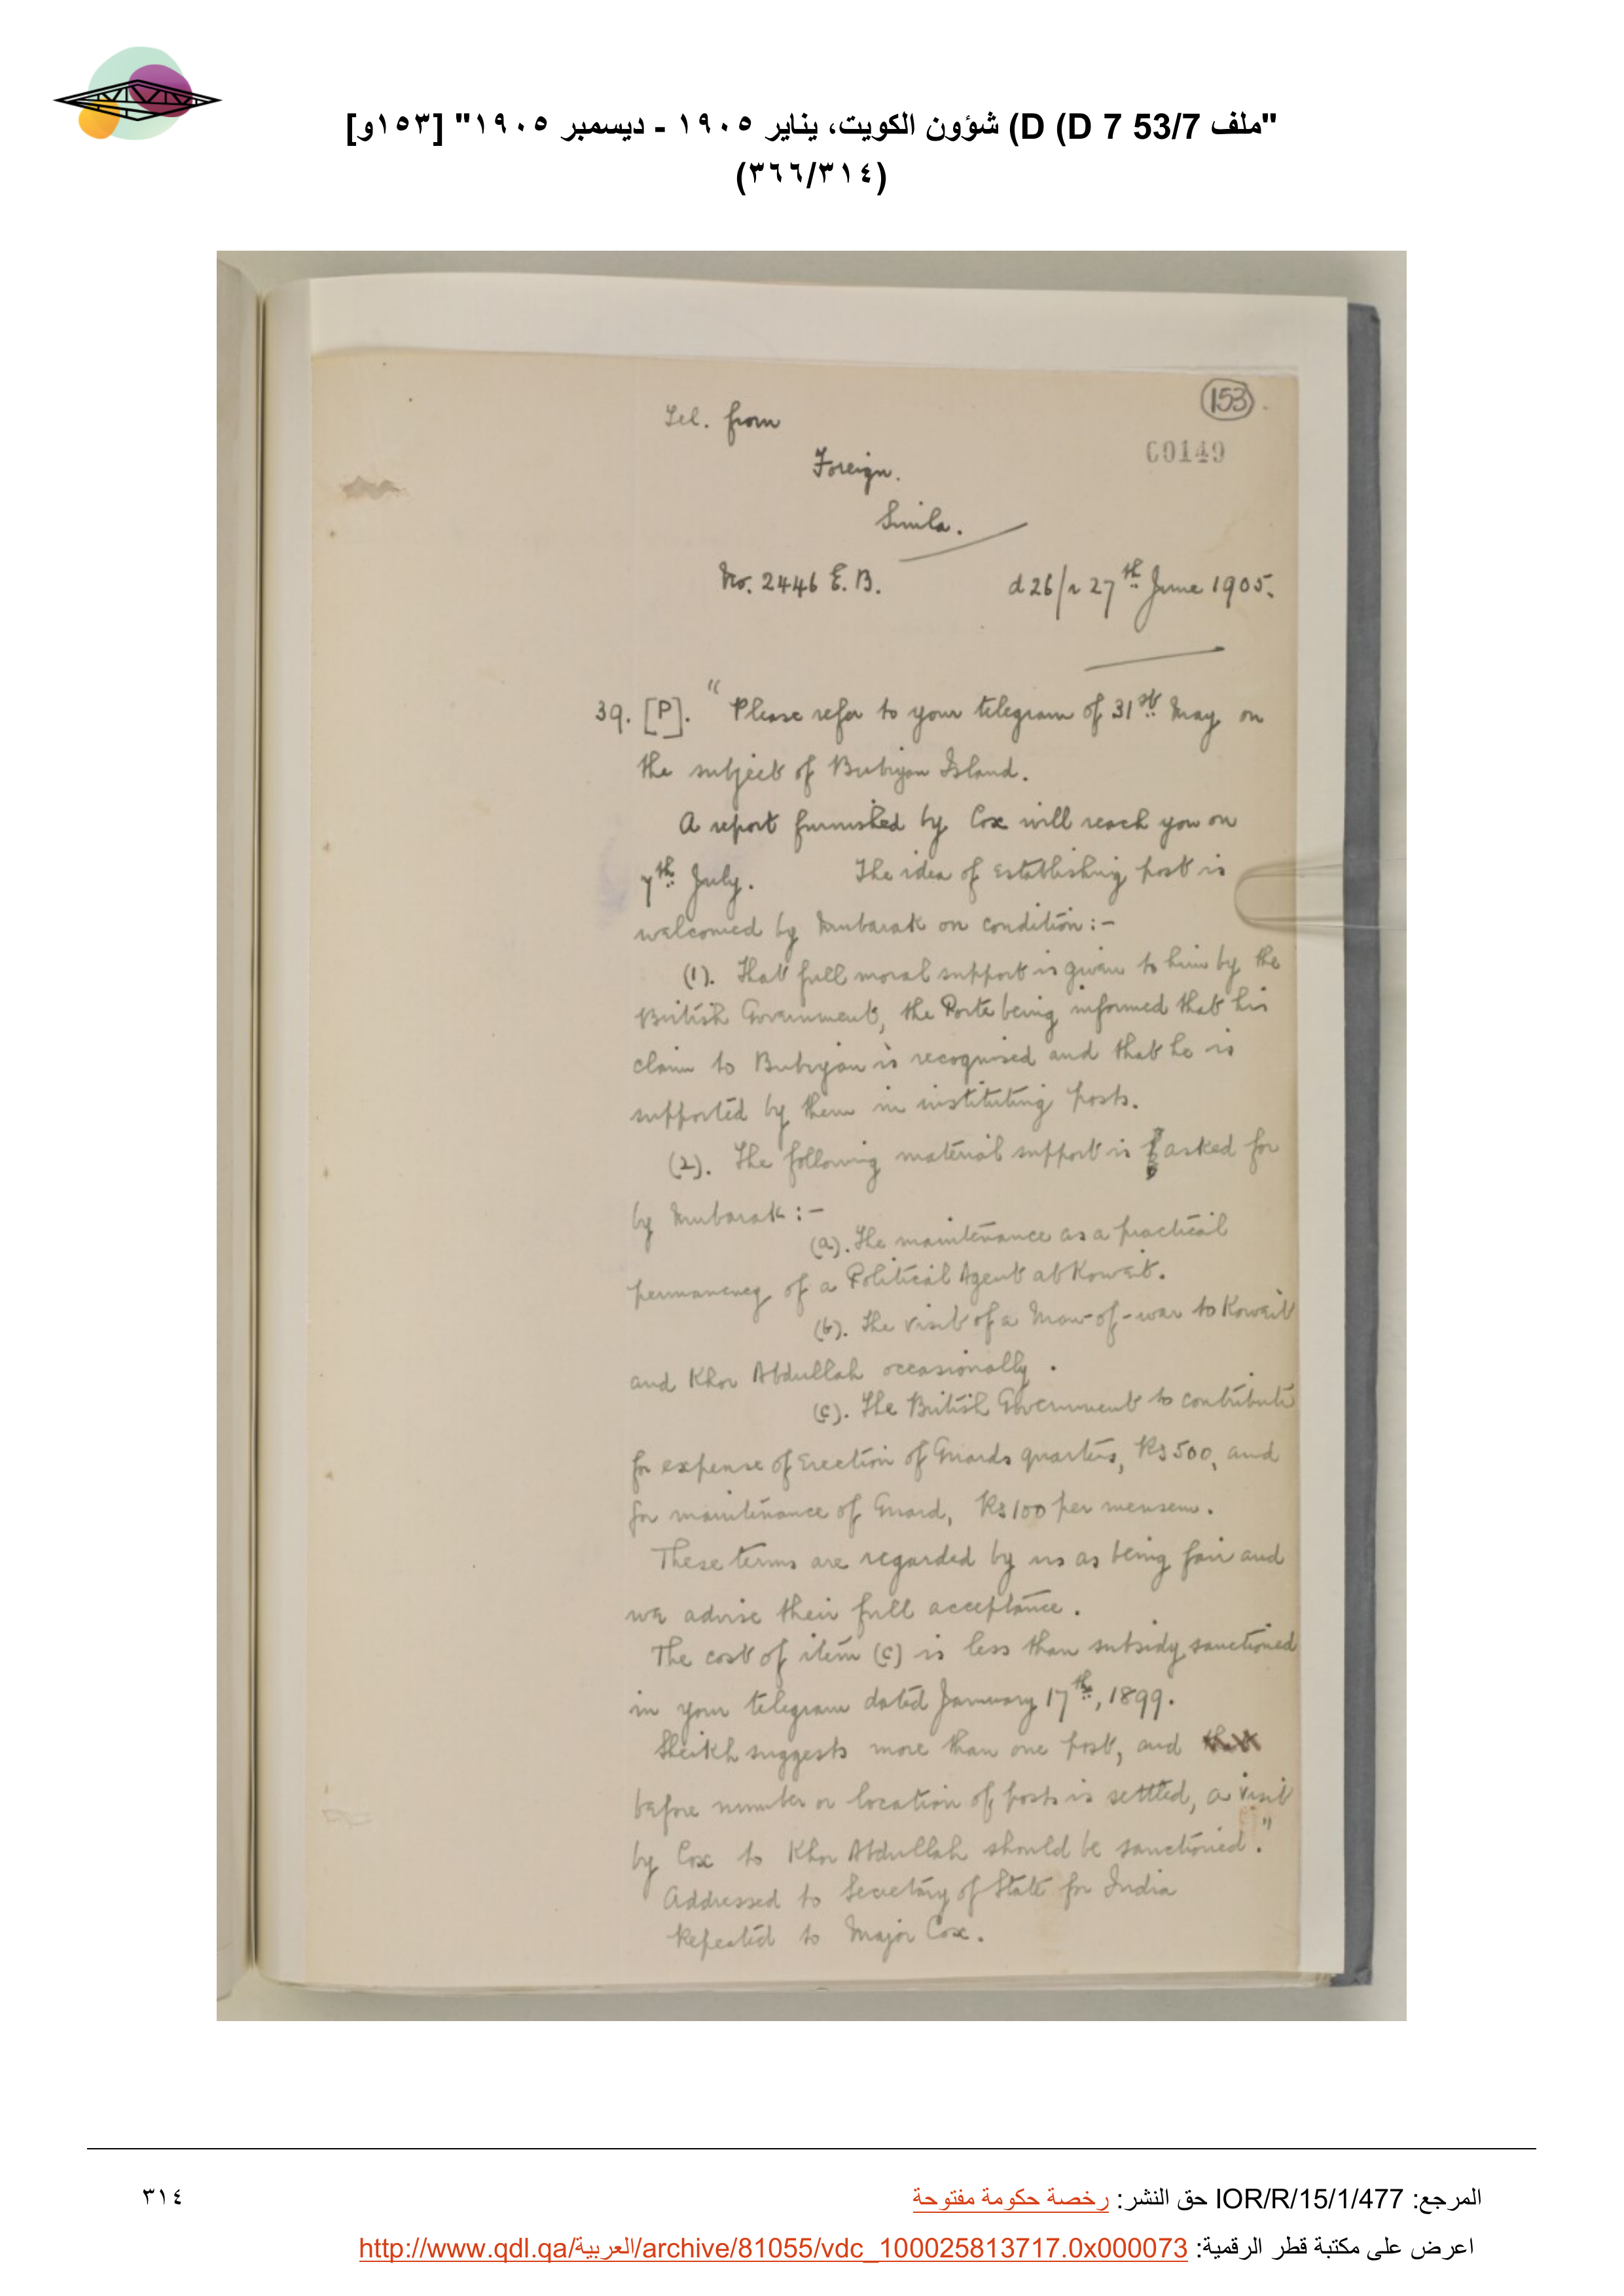 "ملف 53/7 D (D 7) شؤون الكويت، يناير ١٩٠٥ - ديسمبر ١٩٠٥" [١٥٣و]
(٣٦٦/٣١٤)
153
00149
Tel. from
Foreign.
Simla.
No. 2446 E.B. d 26/r 27th June 1905.
39. [P]. "Please refer to your telegram of 31st May on
the subject of Bubiyan Island.
A report furnished by Cox will reach you on
7th July. The idea of establishing post is
welcomed by Mubarak on condition :-
(1). That full moral support is given to him by the
British Government, the Porte being informed that his
claim to Bubiyan is recognised and that he is
supported by them in instituting posts.
(2). The following material support is asked for
by Mubarak :-
(a). The maintenance as a practical
permanency of a Political Agent at Koweit.
(b). The visit of a Man-of-war to Koweit
and Khor Abdullah occasionally.
(c). The British Government to contribute
for expense of Erection of Guards quarters, Rs 500, and
for maintenance of Guard, Rs 100 per mensem.
These terms are regarded by us as being fair and
we advise their full acceptance.
The cost of item (c) is less than subsidy sanctioned
in your telegram dated January 17th, 1899.
Sheikh suggests more than one post, and
before number or location of posts is settled, a visit
by Cox to Khor Abdullah should be sanctioned."
Addressed to Secretary of State for India
Repeated to Major Cox.
المرجع: IOR/R/15/1/477 حق النشر: رخصة حكومة مفتوحة
٣١٤
اعرض على مكتبة قطر الرقمية: http://www.qdl.qa/العربية/archive/81055/vdc_100025813717.0x000073